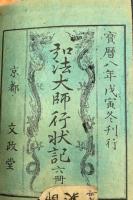 寶暦八年戊寅冬刊行
弘法大師行状記 六冊
京都 文政堂